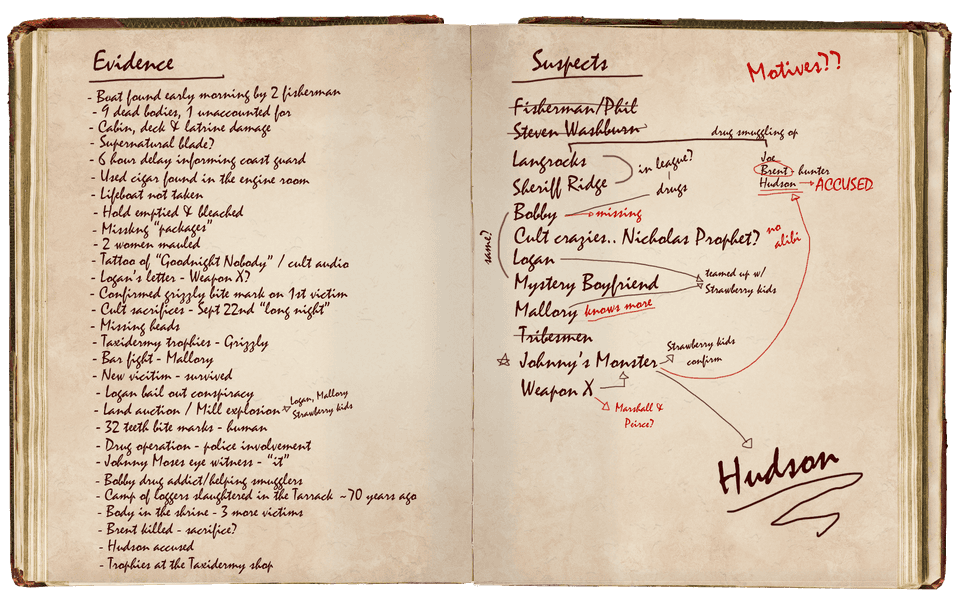 Evidence
- Boat found early morning by 2 fisherman
- 9 dead bodies, 1 unaccounted for
- Cabin, deck & latrine damage
- Supernatural blade?
- 6 hour delay informing coast guard
- Used cigar found in the engine room
- Lifeboat not taken
- Hold emptied & bleached
- Misskng "packages"
- 2 women mauled
- Tattoo of "Goodnight Nobody" / cult audio
- Logan's letter - Weapon X?
- Confirmed grizzly bite mark on 1st victim
- Cult sacrifices - Sept 22nd "long night"
- Missing heads
- Taxidermy trophies - Grizzly
- Bar fight - Mallory
- New vicitim - survived
- Logan bail out conspiracy
- Land auction / Mill explosion
Logan, Mallory
Strawberry kids
- 32 teeth bite marks - human
- Drug operation - police involvement
- Johnny Moses eye witness - "it"
- Bobby drug addict/helping smugglers
- Camp of loggers slaughtered in the Tarrack ~70 years ago
- Body in the shrine - 3 more victims
- Brent killed - sacrifice?
- Hudson accused
- Trophies at the Taxidermy shop
Suspects
Motives??
Fisherman/Phil
Steven Washburn
drug smuggling op
Joe
Brent - hunter
Hudson → ACCUSED
Langrocks
Sheriff Ridge
in league?
drugs
Bobby
missing
same?
Cult crazies.. Nicholas Prophet?
no alibi
Logan
Mystery Boyfriend
teamed up w/
Strawberry kids
Mallory knows more
Tribesmen
☆ Johnny's Monster
Strawberry kids
confirm
Weapon X
Marshall &
Peirce?
Hudson